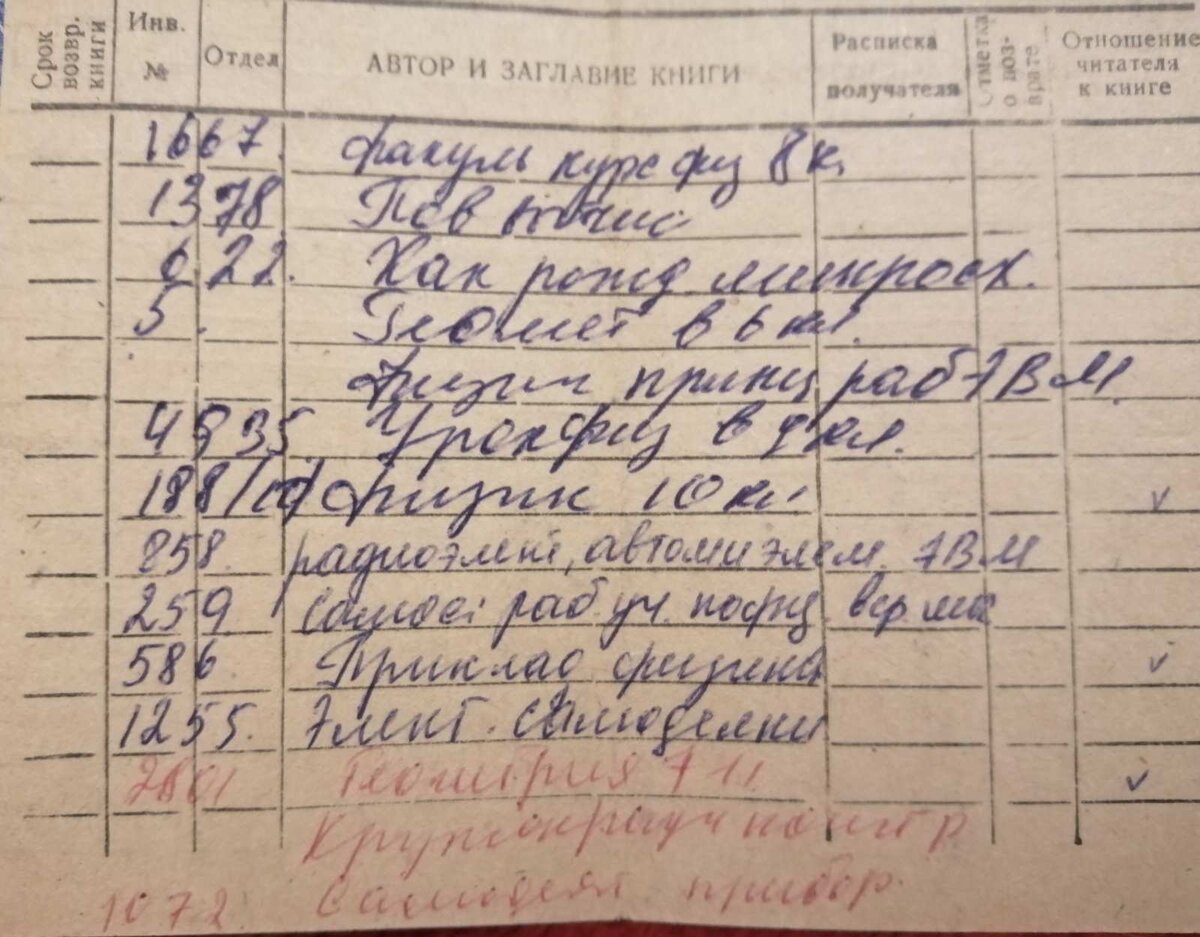 Срок возвр. книги
Инв. №
Отдел
АВТОР И ЗАГЛАВИЕ КНИГИ
Расписка получателя
Отметка о воз- врате
Отношение читателя к книге
1667. факуль курс физ 8 к.
1378.
622. Как рожд микросх.
5. Геомет в 6 кл.
Физич принц раб ЭВМ.
4935. Урок физ в 9 кл.
188/10 Физик 10 кл.
858. радиоэлект, автом и элем. ЭВМ
259 Самост раб уч. по физ
586. Приклад физика
1255. Элект. самоделки
2801 Геометрия 7 11.
Кружок
1072. Самодел прибор.